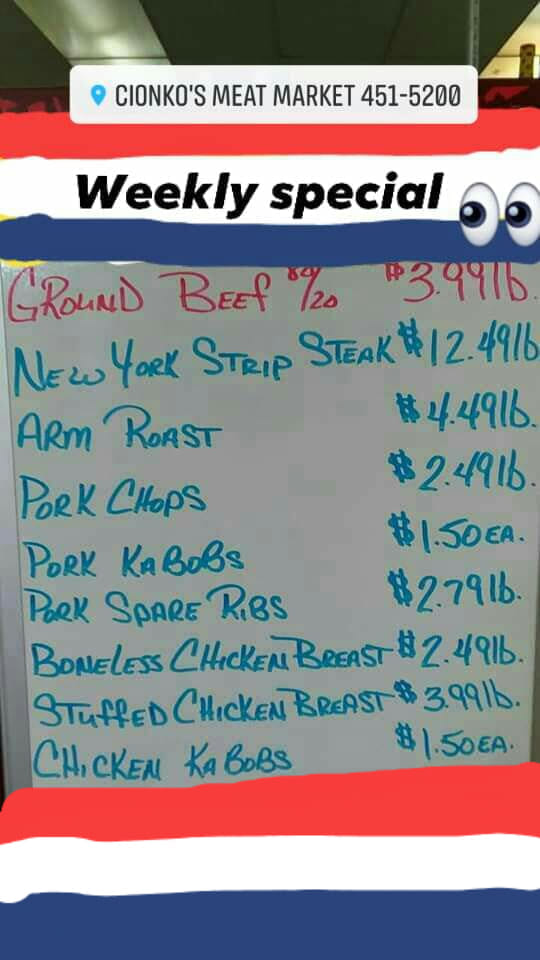 CIONKO'S MEAT MARKET 451-5200
Weekly special
GROUND BEEF 80/20 $3.99lb.
NEW YORK STRIP STEAK $12.49lb
ARM ROAST $4.49lb.
PORK CHOPS $2.49lb.
PORK KABOBS $1.50 EA.
PORK SPARE RIBS $2.79lb.
BONELESS CHICKEN BREAST $2.49lb.
STUFFED CHICKEN BREAST $3.99lb.
CHICKEN KABOBS $1.50 EA.